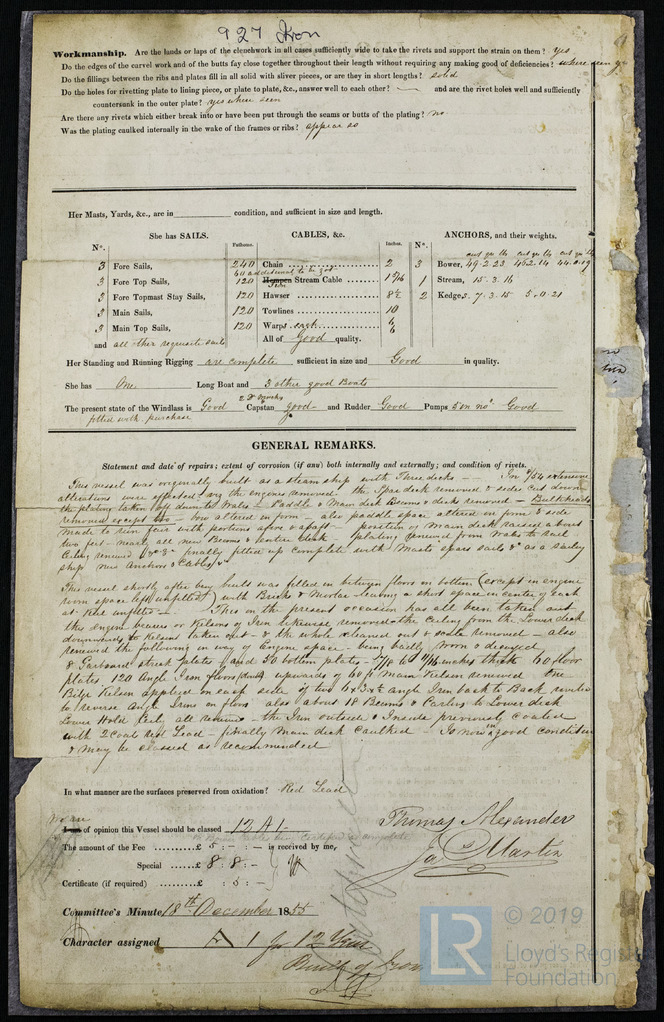 927 Iron
Workmanship. Are the lands or laps of the clenchwork in all cases sufficiently wide to take the rivets and support the strain on them? yes
Do the edges of the carvel work and of the butts fay close together throughout their length without requiring any making good of deficiencies? where seen yes
Do the fillings between the ribs and plates fill in all solid with sliver pieces, or are they in short lengths? solid
Do the holes for rivetting plate to lining piece, or plate to plate, &c., answer well to each other? — and are the rivet holes well and sufficiently
countersunk in the outer plate? yes where seen
Are there any rivets which either break into or have been put through the seams or butts of the plating? no
Was the plating caulked internally in the wake of the frames or ribs? appear so
Her Masts, Yards, &c., are in condition, and sufficient in size and length.
She has SAILS. CABLES, &c. ANCHORS, and their weights.
N°. Fathoms. Inches. N°.
3 Fore Sails, 240 Chain 2 3 Bower, 49.2.23 45.2.14 44.0.19
60 additional to be got
3 Fore Top Sails, 120 Hempen Iron Stream Cable 1 5/16 1 Stream, 15.3.16
3 Fore Topmast Stay Sails, 120 Hawser 8½ 2 Kedges, 7.3.15 5.0.21
3 Main Sails, 120 Towlines 10
3 Main Top Sails, 120 Warps each 6
and all other requisite sails All of Good quality.
Her Standing and Running Rigging are complete sufficient in size and Good in quality.
She has One Long Boat and 3 other good Boats
The present state of the Windlass is Good Capstan good and Rudder Good Pumps 5 in no. Good
fitted with purchase
GENERAL REMARKS.
Statement and date of repairs; extent of corrosion (if any) both internally and externally; and condition of rivets.
This vessel was originally built as a steam ship with Three decks — In 54 extensive
alterations were effected, the engines removed, the Spar deck removed & sides cut down
the plating taken off down to Wales — Paddle & Main deck Beams & decks removed — Bulkheads
removed except two — bow altered in form — also paddle space altered in form & side
made to run fair with portions afore & abaft — position of Main deck raised about
two feet — nearly all new Beams & entire deck plating renewed from Wales to rail
Ceiling renewed &c &c finally fitted up complete with Masts spars sails &c as a sailing
ship new Anchors & Cables &c
This vessel shortly after being built was filled in between floors on bottom (except in engine
room space left unfilled) with Bricks & Mortar leaving a short space in center of each
at Keel unfilled — This on the present occasion has all been taken out
the engine bearers or Kelsons of Iron likewise removed the Ceiling from the Lower deck
downwards to Kelsons taken out — & the whole cleaned out & scale removed — also
renewed the following in way of Engine space — being badly worn & decayed
8 Garboard streak plates and 30 bottom plates — 7/16 to 11/16 inches thick 60 floor
plates 120 Angle Iron floors upwards of 60 ft Main Kelson renewed One
Bilge Kelson applied on each side of two 6x3x½ angle Iron back to Back riveted
to reverse angle Irons on floors also about 18 Beams & Carlins to Lower deck
Lower Hold all renewed — the Iron outside & Inside previously coated
with 2 Coats red Lead — finally Main deck caulked — Is now in good condition
& may be classed as recommended
In what manner are the surfaces preserved from oxidation? Red Lead
We are
I am of opinion this Vessel should be classed 12 A1
The amount of the Fee £ 5 : - : - is received by me,
Special £ 8 : 8 : -
Certificate (if required) £ : 5 : -
Thomas Alexander
Jas Martin
Committee's Minute 18th December 1855
Character assigned A 1 for 12 Years
Built of Iron
LR
© 2019
Lloyd's Register
Foundation